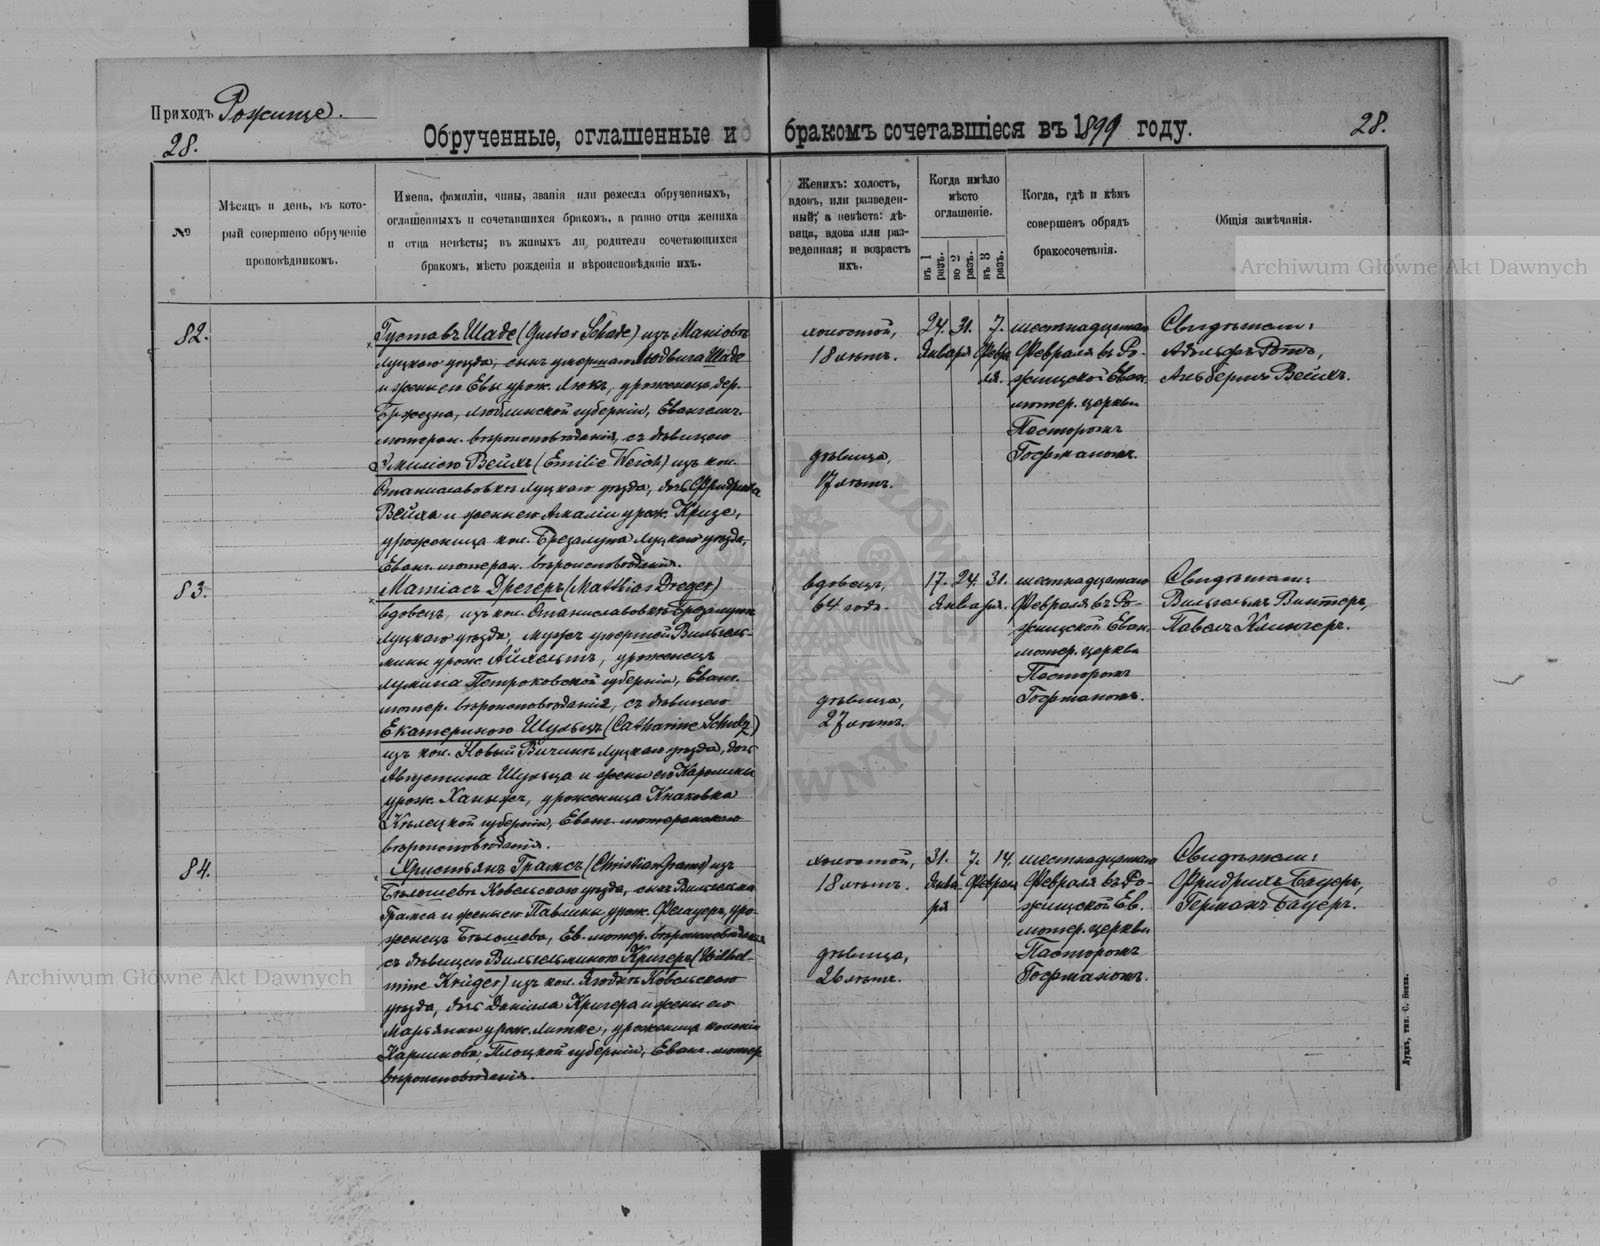 Приходъ Рожище.
28.
Обрученные, оглашенные и бракомъ сочетавшіеся въ 1899 году.
28.
№
Мѣсяцъ и день, въ кото-
рый совершено обрученіе
проповѣдникомъ.
Имена, фамиліи, чины, званія или ремесла обрученныхъ,
оглашенныхъ и сочетавшихся бракомъ, а равно отца жениха
и отца невѣсты; въ живыхъ ли родители сочетающихся
бракомъ, мѣсто рожденія и вѣроисповѣданіе ихъ.
Женихъ: холостъ,
вдовъ, или разведен-
ный; а невѣста: дѣ-
вица, вдова или раз-
веденная; и возрастъ
ихъ.
Когда имѣло
мѣсто
оглашеніе.
въ 1 разъ.
во 2 разъ.
въ 3 разъ.
Когда, гдѣ и кѣмъ
совершенъ обрядъ
бракосочетанія.
Общія замѣчанія.
82.
Густавъ Шаде (Gustav Schade) изъ Маніовъ
луцкаго уѣзда, сынъ умершаго Людвига Шаде
и жены его Евы урож. Люкъ, уроженецъ дер.
Бржезна, Люблинской губерніи, Евангелич.
лютеран. вѣроисповѣданія, съ дѣвицею
Эмиліею Вейхъ (Emilie Weich) изъ кол.
Станиславовка луцкаго уѣзда, дочь Фридриха
Вейха и жены его Амаліи урож. Кризе,
уроженица кол. Брезалупа луцкаго уѣзда,
Еванг. лютеран. вѣроисповѣданія.
холостой,
18 лѣтъ.
дѣвица,
17 лѣтъ.
24. 31. 7.
Января Февра
ля.
шестнадцатаго
Февраля въ Ро-
жищской Еван.
лютер. церкви
Пасторомъ
Гофманомъ.
Свидѣтели:
Адольфъ Ротъ,
Альбертъ Вейхъ.
83.
Матіасъ Дрегеръ (Matthias Dreger)
вдовецъ, изъ кол. Станиславовка Брезалупъ
луцкаго уѣзда, мужъ умершей Вильгель-
мины урож. Айхельтъ, уроженецъ
Петроковской губерніи, Еванг.
лютер. вѣроисповѣданія, съ дѣвицею
Екатериною Шульцъ (Catharine Schulz)
изъ кол. Новый луцкаго уѣзда, дочь
Августина Шульца и жены его Каролины
урож. уроженица
Кѣлецкой губерніи, Еванг. лютеранскаго
вѣроисповѣданія.
вдовецъ,
64 года.
дѣвица,
27 лѣтъ.
17. 24. 31.
Января.
шестнадцатаго
Февраля въ Ро-
жищской Еван.
лютер. церкви
Пасторомъ
Гофманомъ.
Свидѣтели:
Вильгельмъ Винтеръ,
Павелъ Клингеръ.
84.
Христьянъ Грамсъ (Christian Grams) изъ
Бѣлошевъ Ковельскаго уѣзда, сынъ Вильгельма
Грамса и жены его Павлины урож. уро-
женецъ Бѣлошева, Ев. лютер. вѣроисповѣданія
съ дѣвицею Вильгельминою Кригеръ (Wilhel-
mine Krüger) изъ кол. Ягодня Ковельскаго
уѣзда, дочь Даніила Кригера и жены его
Марьянны урож. Литке, уроженица колоніи
Плоцкой губерніи, Еванг. лютер.
вѣроисповѣданія.
холостой,
18 лѣтъ.
дѣвица,
26 лѣтъ.
31. 7. 14.
Янва Февраля
ря
шестнадцатаго
Февраля въ Ро-
жищской Ев.
лютер. церкви
Пасторомъ
Гофманомъ.
Свидѣтели:
Фридрихъ Бауеръ,
Германъ Бауеръ.
Archiwum Główne Akt Dawnych
Archiwum Główne Akt Dawnych